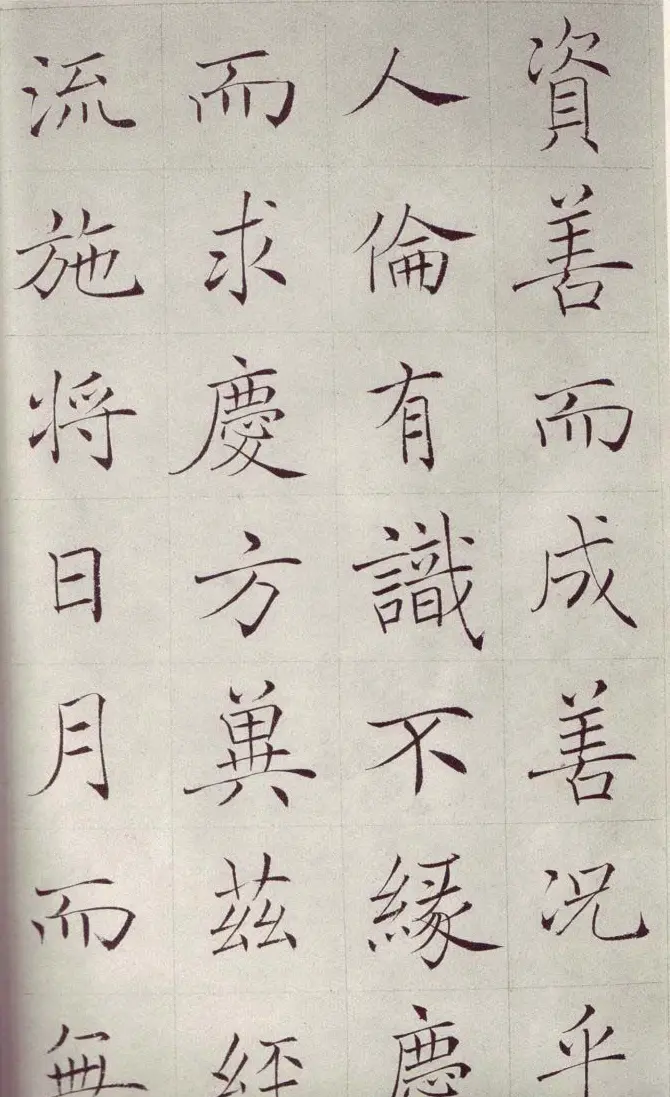 資善而成善况乎
人倫有識不緣慶
而求慶方冀茲経
流施将日月而無